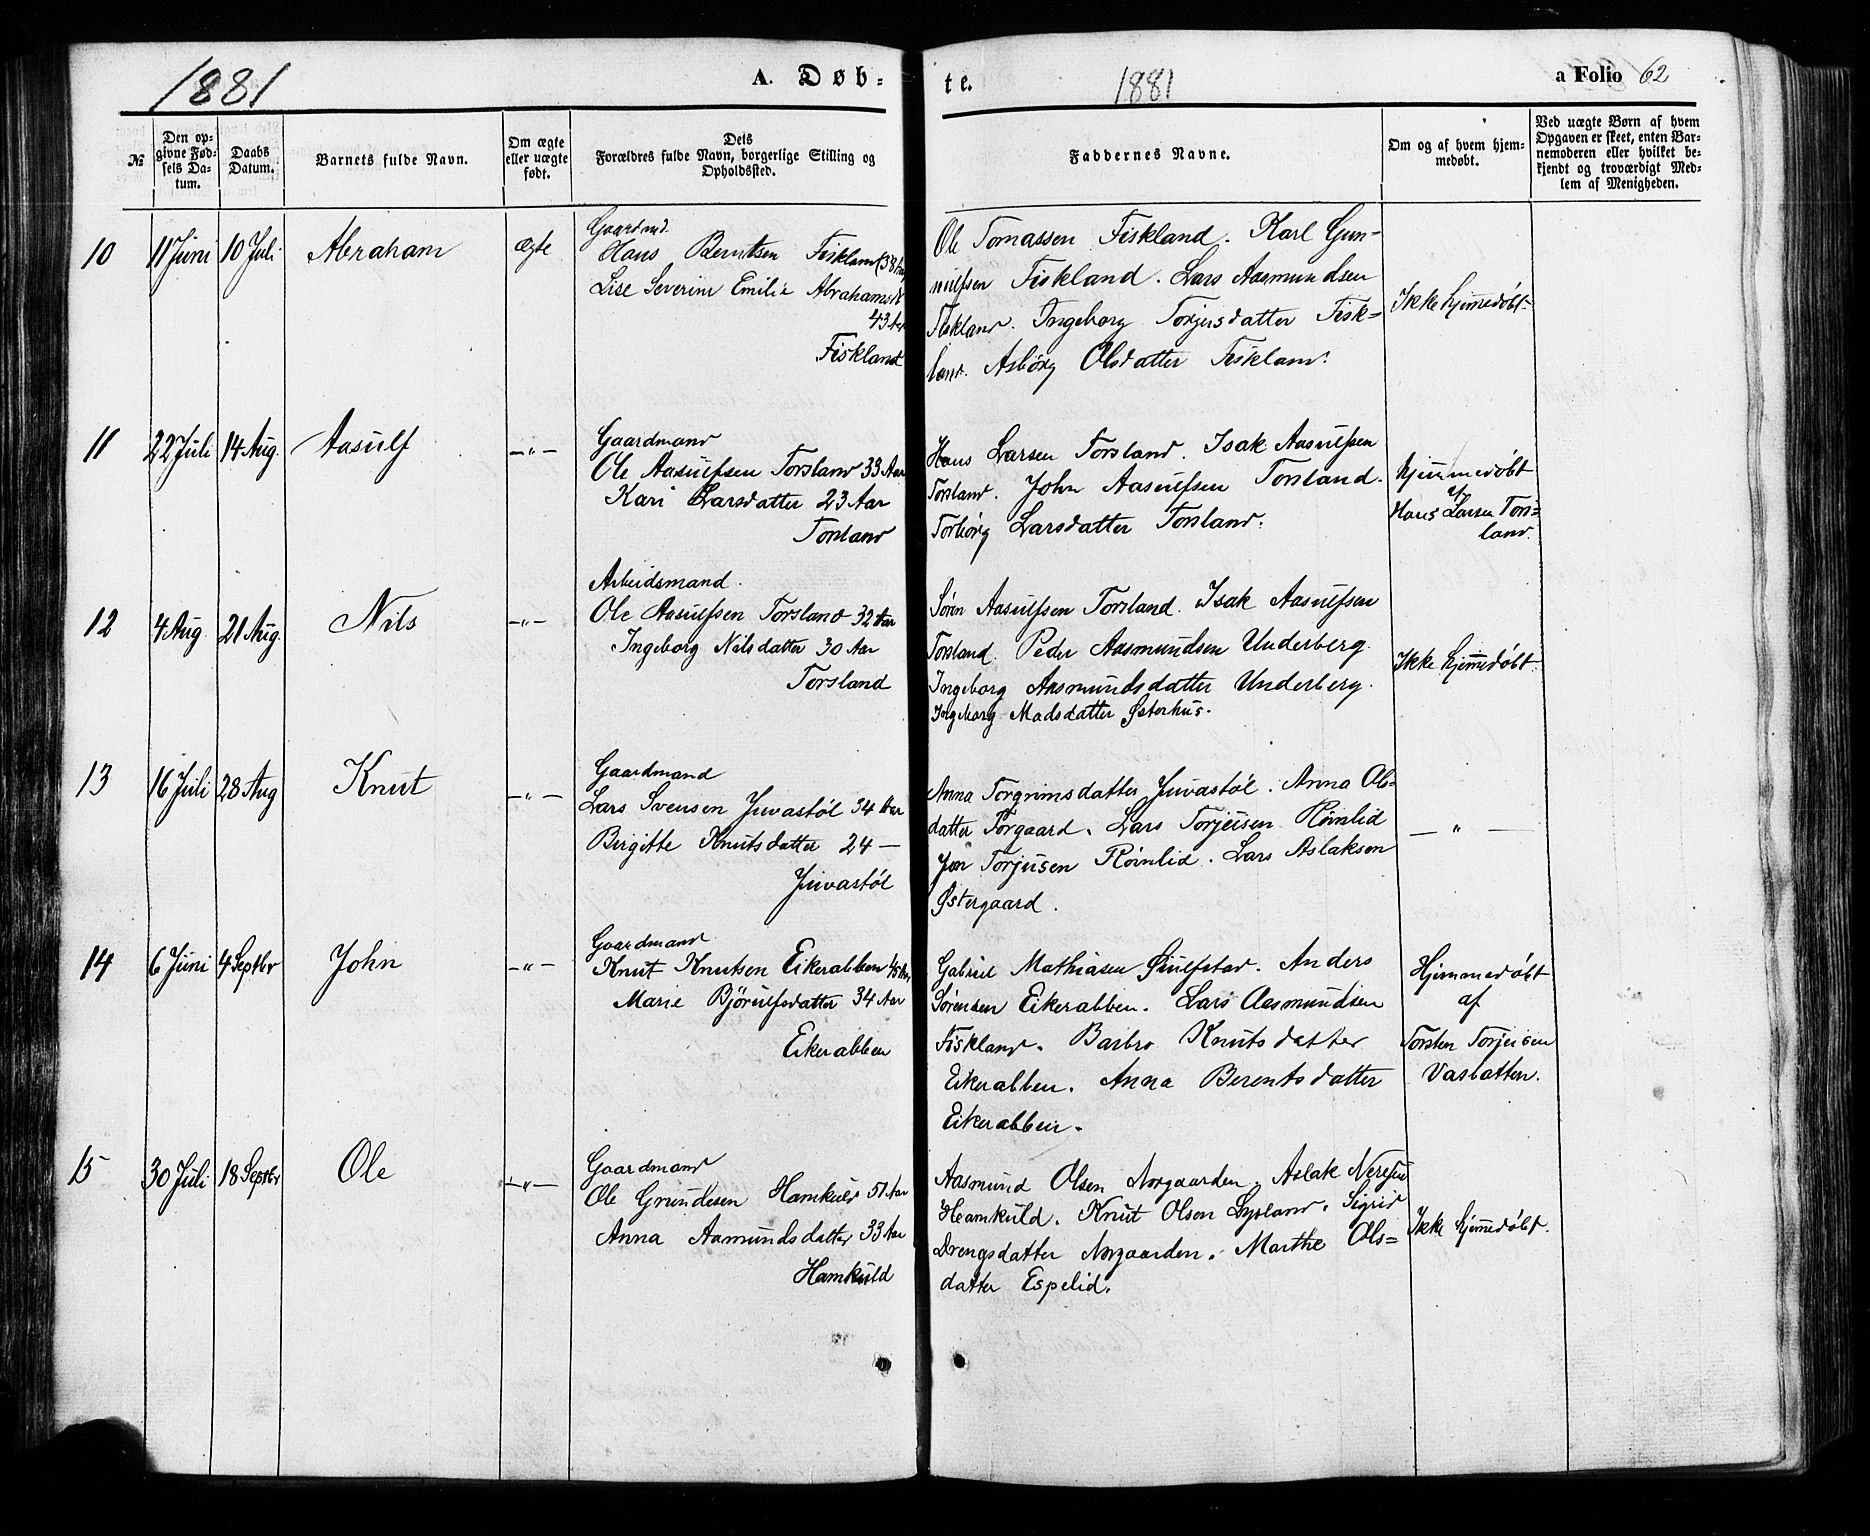 1881 A. Døb-
№
Den op-
givne Fød-
sels Da-
tum.
Daabs
Datum.
Barnets fulde Navn.
Om ægte
eller uægte
født.
Dets
Forældres fulde Navn, borgerlige Stilling og
Opholdssted.
10 11 Juni 10 Juli Abraham ægte
Gaardmd.
Hans Berntsen Fiskland (38 Aar)
Lise Severine Emilie Abrahamsd
43 Aar
Fiskland
11 22 Juli 14 Aug. Aasulf -"-
Gaardmand
Ole Aasulfsen Torsland 33 Aar
Kari Larsdatter 23 Aar
Torsland
12 4 Aug. 21 Aug. Nils -"-
Arbeidsmand.
Ole Aasulfsen Torsland 32 Aar
Ingeborg Nilsdatter 30 Aar
Torsland
13 16 Juli 28 Aug Knut -"-
Gaardmand
Lars Svensen Juvastøl 34 Aar
Birgitte Knutsdatter 24 —
Juvastøl
14 6 Juni 4 Septbr John -"-
Gaardmand
Knut Knutsen Eikerabben 45 Aar
Marie Bjørulfsdatter 34 Aar
Eikerabben
15 30 Juli 18 Septbr Ole -"-
Gaardmand
Ole Grundesen Hamkuld 51 Aar
Anna Aamundsdatter 33 Aar
Hamkuld
te. 1881 a Folio 62
Faddernes Navne.
Om og af hvem hjem-
medøbt.
Ved uægte Børn af hvem
Opgaven er skeet, enten Bar-
nemoderen eller hvilket be-
kjendt og troværdigt Med-
lem af Menigheden.
Ole Tomassen Fiskland. Karl Gun-
nulfsen Fiskland. Lars Aasmundsen
Fiskland. Ingeborg Torjusdatter Fisk=
land. Asbörg Olsdatter Fiskland.
Ikke hjemmedøbt.
Hans Larsen Torsland. Isak Aasulfsen
Torsland. John Aasulfsen Torsland.
Torbörg Larsdatter Torsland.
hjemmedøbt
af
Hans Larsen Tors=
land.
Sören Aasulfsen Torsland. Isak Aasulfsen
Torsland. Peder Aasmundsen Underberg.
Ingeborg Aasmundsdatter Underberg.
Ingeborg Madsdatter Østerhus.
Ikke hjemmedøbt.
Anna Torgrimsdatter Juvastøl. Anna Ols=
datter Torgaard. Lars Torjusen Röinlid
Jon Torjusen Röinlid. Lars Aslaksen
Østergaard.
— " —
Gabriel Mathiasen Ouflestad. Anders
Sörensen Eikerabben. Lars Aasmundsen
Fiskland. Barbro Knutsdatter
Eikerabben. Anna Berentsdatter
Eikerabben.
Hjemmedøbt
af
Torsten Torjusen
Vaslatten.
Aasmund Olsen Norgaarden. Aslak
Heamkuld. Knut Olsen Lysland. Sigrid
Drengsdatter Norgaarden. Marthe Ols=
datter Espelid.
Ikke hjemmedøbt.